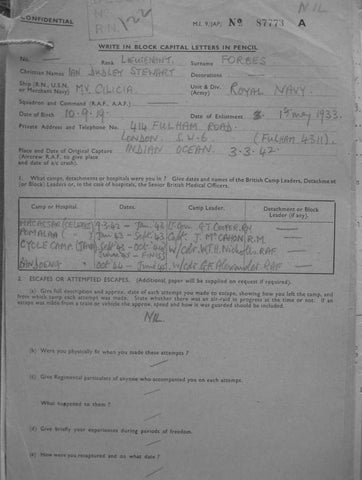 NIL
CONFIDENTIAL
N
R.N. 122
M.I. 9/JAP/ No 87773 A
WRITE IN BLOCK CAPITAL LETTERS IN PENCIL
No. — Rank LIEUTENANT. Surname FORBES
Christian Names IAN DUDLEY STEWART Decorations —
Ship (R.N., U.S.N. or Merchant Navy) MV. CILICIA. Unit & Div. (Army) ROYAL NAVY.
Squadron and Command (R.A.F., A.A.F.) —
Date of Birth 10.9.19. Date of Enlistment 1st MAY 1933.
Private Address and Telephone No. 414 FULHAM ROAD.
LONDON. S.W.6. (FULHAM 4311).
Place and Date of Original Capture INDIAN OCEAN. 3.3.42.
(Aircrew R.A.F. to give place and date of a/c crash).
1. What camps, detachments or hospitals were you in? Give dates and names of the British Camp Leaders, Detachment (or Block) Leaders or, in the case of hospitals, the Senior British Medical Officers.
Camp or Hospital. Dates. Camp Leader. Detachment or Block Leader (if any).
MACASSAR (CELEBES) 9.3.42 - Jan. 43 G.T. COOPER. RN —
POMALAA Jan 43 - Sept 43 Capt T. M. R.M. —
CYCLE CAMP. (JAVA) Sept 43 - Oct 44 W/Cdr W.T.H. Nicholls. RAF —
BANDOENG Oct 44 - W/Cdr G.F. Alexander. RAF —
2. ESCAPES OR ATTEMPTED ESCAPES. (Additional paper will be supplied on request if required).
(a) Give full description and approx. date of each attempt you made to escape, showing how you left the camp, and from which camp each attempt was made. State whether there was an air-raid in progress at the time or not. If an escape was made from a train or vehicle the approx. speed and how it was guarded should be included.
NIL
(b) Were you physically fit when you made these attempts?
(c) Give Regimental particulars of anyone who accompanied you on each attempt.
What happened to them?
(d) Give briefly your experiences during periods of freedom.
(e) How were you recaptured and on what date?